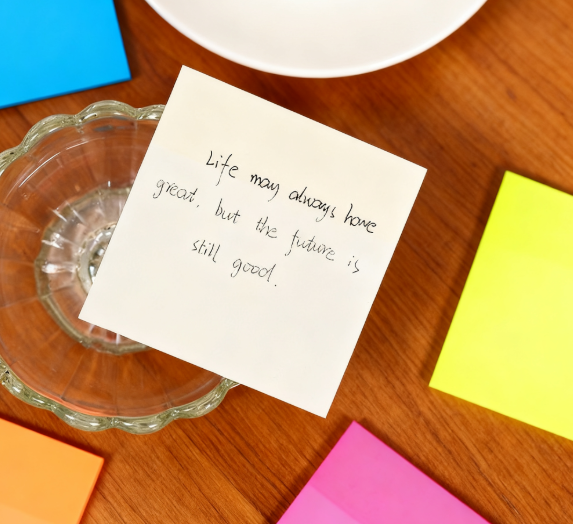 Life may always have
great, but the future is
still good.